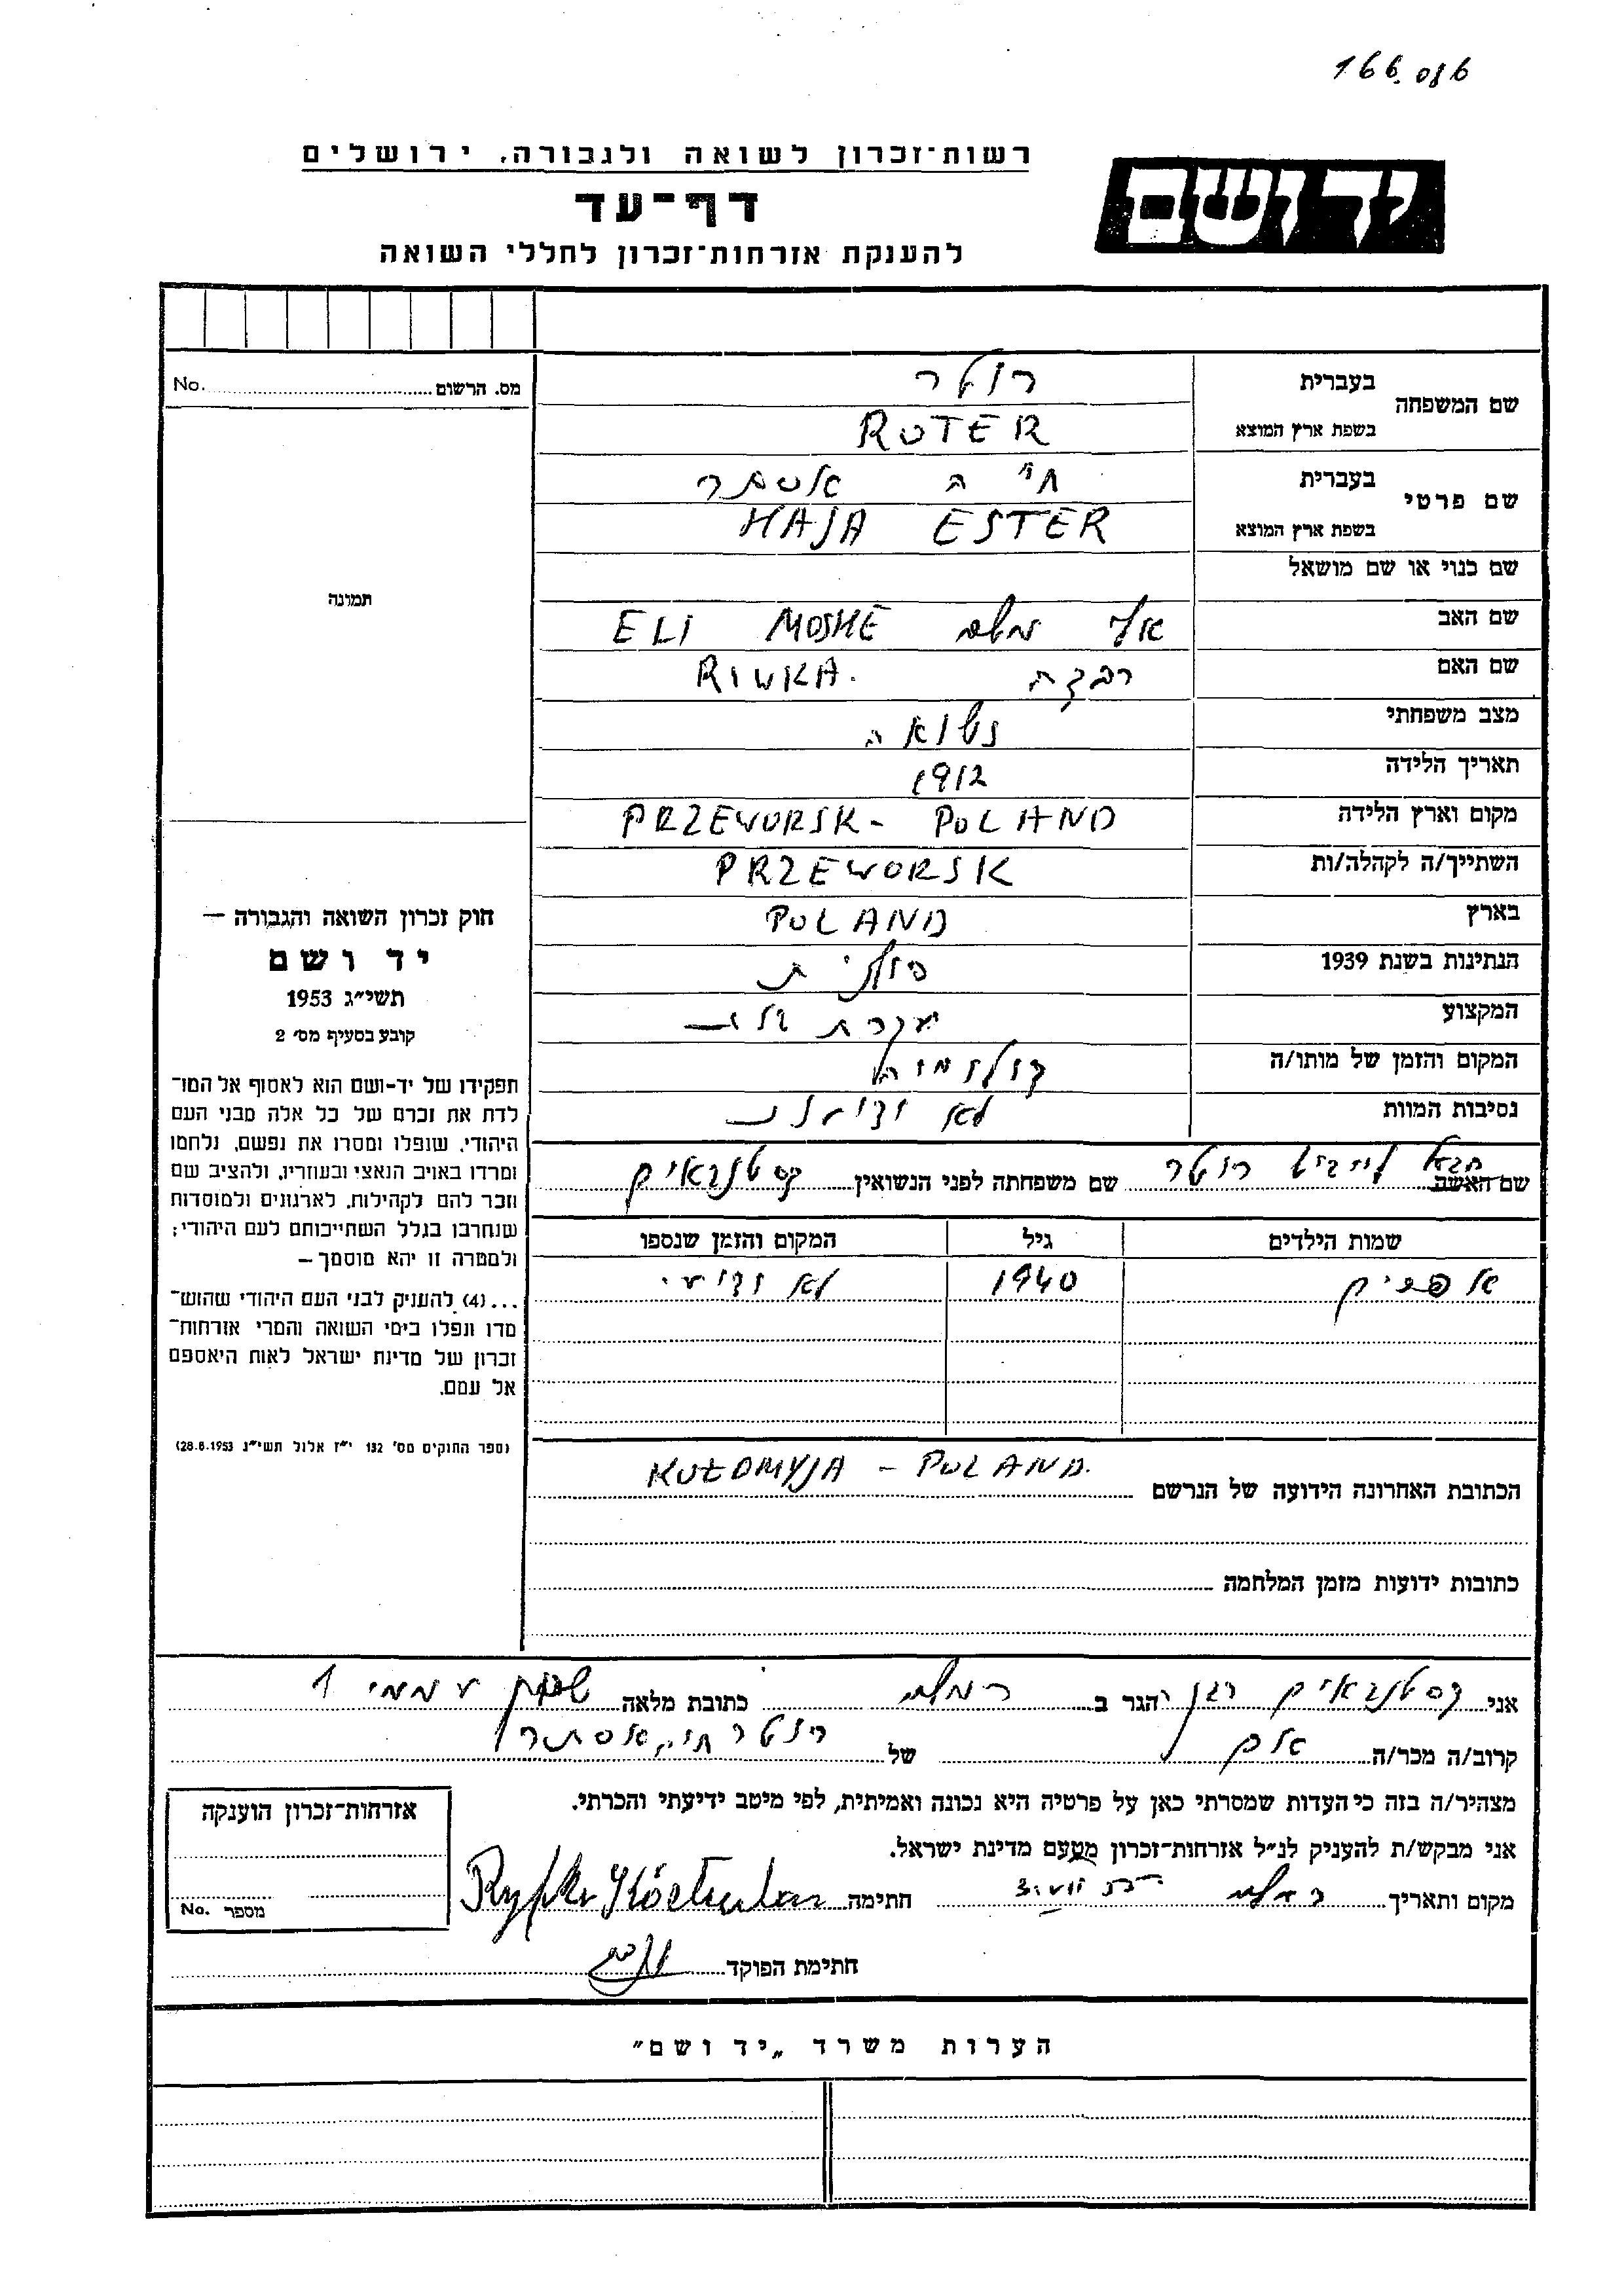 166.086
רשות־זכרון לשואה ולגבורה, ירושלים
יד ושם
דף־עד
להענקת אזרחות־זכרון לחללי השואה
מס. הרשום No.
תמונה
שם המשפחה
בעברית רוטר
בשפת ארץ המוצא ROTER
שם פרטי
בעברית חיה אסתר
בשפת ארץ המוצא HAJA ESTER
שם כנוי או שם מושאל
שם האב אלי משה ELI MOSHE
שם האם רבקה RIWKA.
מצב משפחתי נשואה
תאריך הלידה 1912
מקום וארץ הלידה PRZEWORSK - POLAND
השתייך/ה לקהלה/ות PRZEWORSK
בארץ POLAND
הנתינות בשנת 1939 פולנית
המקצוע עקרת
המקום והזמן של מותו/ה
נסיבות המוות לא
שם האשה רוטר שם משפחתה לפני הנשואין קסטנבאום
שמות הילדים גיל המקום והזמן שנספו
1940 לא
הכתובת האחרונה הידועה של הנרשם KOŁOMYJA - POLAND.
כתובות ידועות מזמן המלחמה
חוק זכרון השואה והגבורה —
יד ושם
תשי״ג 1953
קובע בסעיף מס׳ 2
תפקידו של יד-ושם הוא לאסוף אל המו־
לדת את זכרם של כל אלה מבני העם
היהודי, שנפלו ומסרו את נפשם, נלחמו
ומרדו באויב הנאצי ובעוזריו, ולהציב שם
וזכר להם לקהילות, לארגונים ולמוסדות
שנחרבו בגלל השתייכותם לעם היהודי;
ולמטרה זו יהא מוסמך —
...(4) להעניק לבני העם היהודי שהוש־
מדו ונפלו בימי השואה והמרי אזרחות־
זכרון של מדינת ישראל לאות היאספם
אל עמם.
(ספר החוקים מס׳ 132 י״ז אלול תשי״ג 28.8.1953)
אני קסטנבאום הגר ב רמלה כתובת מלאה שכון עממי 1
קרוב/ה מכר/ה של רוטר חיה אסתר
מצהיר/ה בזה כי העדות שמסרתי כאן על פרטיה היא נכונה ואמיתית, לפי מיטב ידיעתי והכרתי.
אני מבקש/ת להעניק לנ״ל אזרחות־זכרון מטעם מדינת ישראל.
מקום ותאריך רמלה חתימה
חתימת הפוקד
אזרחות־זכרון הוענקה
מספר No.
הערות משרד „יד ושם״